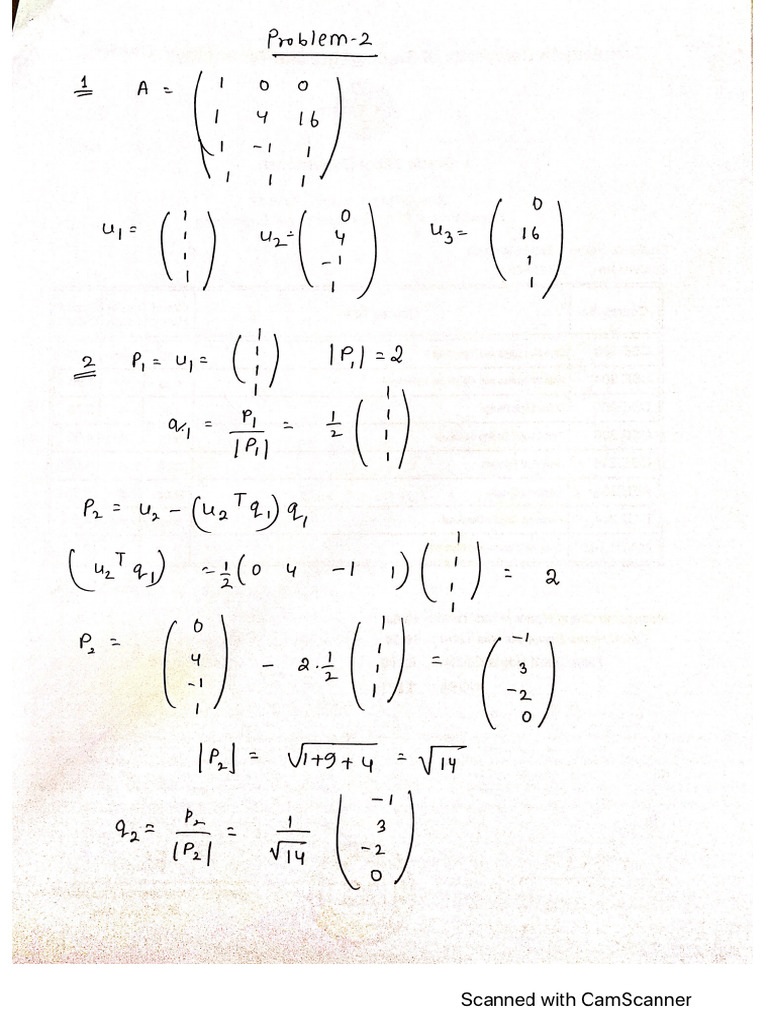 Problem-2
1 A = ( 1 0 0
1 4 16
1 -1 1
1 1 1 )
u₁ = ( 1 1 1 1 ) u₂ = ( 0 4 -1 1 ) u₃ = ( 0 16 1 1 )
2 P₁ = u₁ = ( 1 1 1 1 ) |P₁| = 2
q₁ = P₁/|P₁| = 1/2 ( 1 1 1 1 )
P₂ = u₂ - (u₂ᵀ q₁) q₁
(u₂ᵀ q₁) = 1/2 (0 4 -1 1) ( 1 1 1 1 ) = 2
P₂ = ( 0 4 -1 1 ) - 2·1/2 ( 1 1 1 1 ) = ( -1 3 -2 0 )
|P₂| = √1+9+4 = √14
q₂ = P₂/|P₂| = 1/√14 ( -1 3 -2 0 )
Scanned with CamScanner